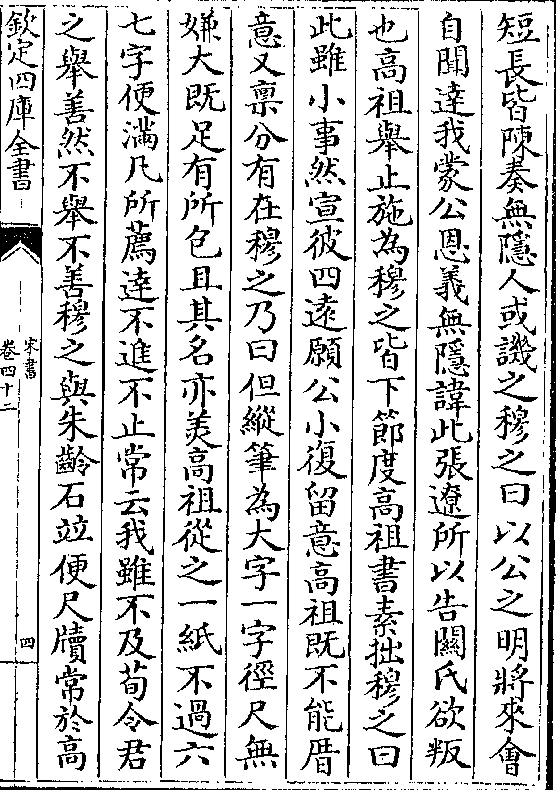 短長皆陳奏無隱人或譏之穆之曰以公之明將來會
自聞達我蒙公恩義無隱諱此張遼所以告關氏欲叛
也高祖舉止施為穆之皆下節度高祖書素拙穆之曰
此雖小事然宣彼四遠願公小復留意高祖既不能厝
意又稟分有在穆之乃曰但縱筆為大字一字徑尺無
嫌大既足有所包且其名亦美高祖從之一紙不過六
七字便滿凡所薦逹不進不止常云我雖不及荀令君
之舉善然不舉不善穆之與朱齡石竝便尺牘常於高
欽定四庫全書
宋書
卷四十二
四